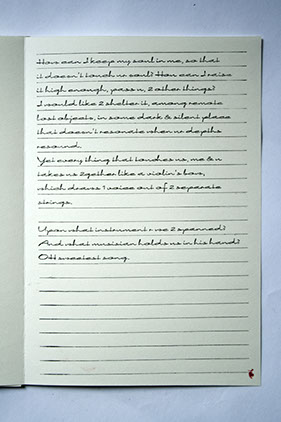 How can I keep my soul in me, so that
it doesn't touch ur soul? How can I raise
it high enough, pass u, 2 other things?
I would like 2 shelter it, among remote
lost objects, in some dark & silent place
that doesn't resonate when ur depths
resound.
Yet every thing that touches us, me & u
takes us 2gether like a violin's bow,
which draws 1 voice out of 2 separate
strings.
Upon what instrument r we 2 spanned?
And what musician holds us in his hand?
OH sweetest song.